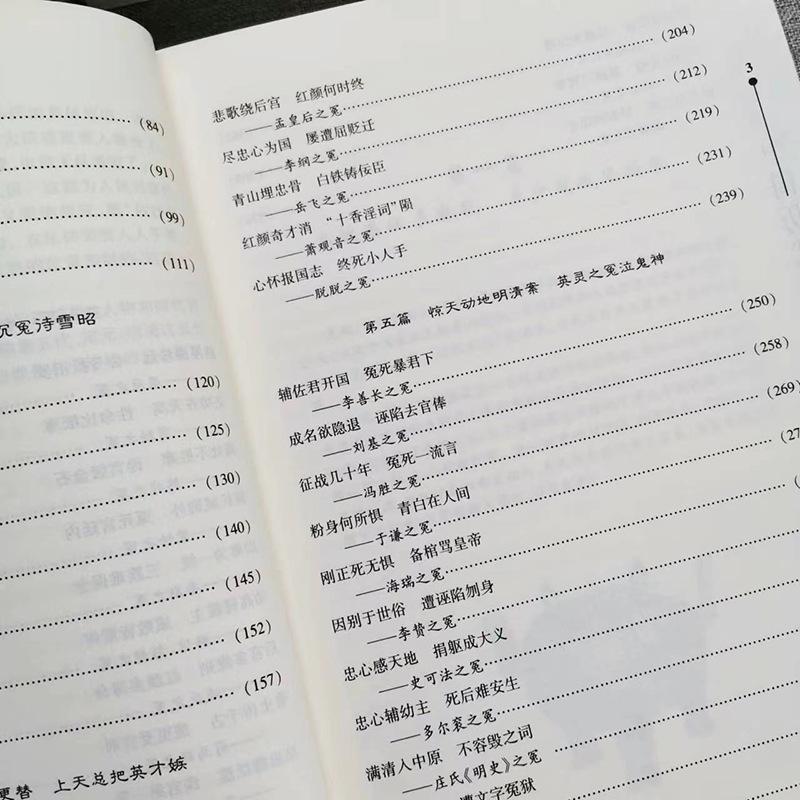 (84)
(91)
(99)
(111)
沉冤待雪昭
(120)
(125)
(130)
(140)
(145)
(152)
(157)
更替 上天总把英才嫉
3
悲歌绕后宫 红颜何时终
——孟皇后之冤……(204)
尽忠心为国 屡遭屈贬迁
——李纲之冤……(212)
青山埋忠骨 白铁铸佞臣
——岳飞之冤……(219)
红颜奇才消 “十香淫词”陨
——萧观音之冤……(231)
心怀报国志 终死小人手
——脱脱之冤……(239)
第五篇 惊天动地明清案 英灵之冤泣鬼神
辅佐君开国 冤死暴君下
——李善长之冤……(250)
成名欲隐退 诬陷去官俸
——刘基之冤……(258)
征战几十年 冤死一流言
——冯胜之冤……(269)
粉身何所惧 青白在人间
——于谦之冤……(27
刚正死无惧 备棺骂皇帝
——海瑞之冤……(2
因别于世俗 遭诬陷刎身
——李贽之冤……
忠心感天地 捐躯成大义
——史可法之冤……
忠心辅幼主 死后难安生
——多尔衮之冤……
满清人中原 不容毁之词
——庄氏《明史》之冤……
遭文字冤狱